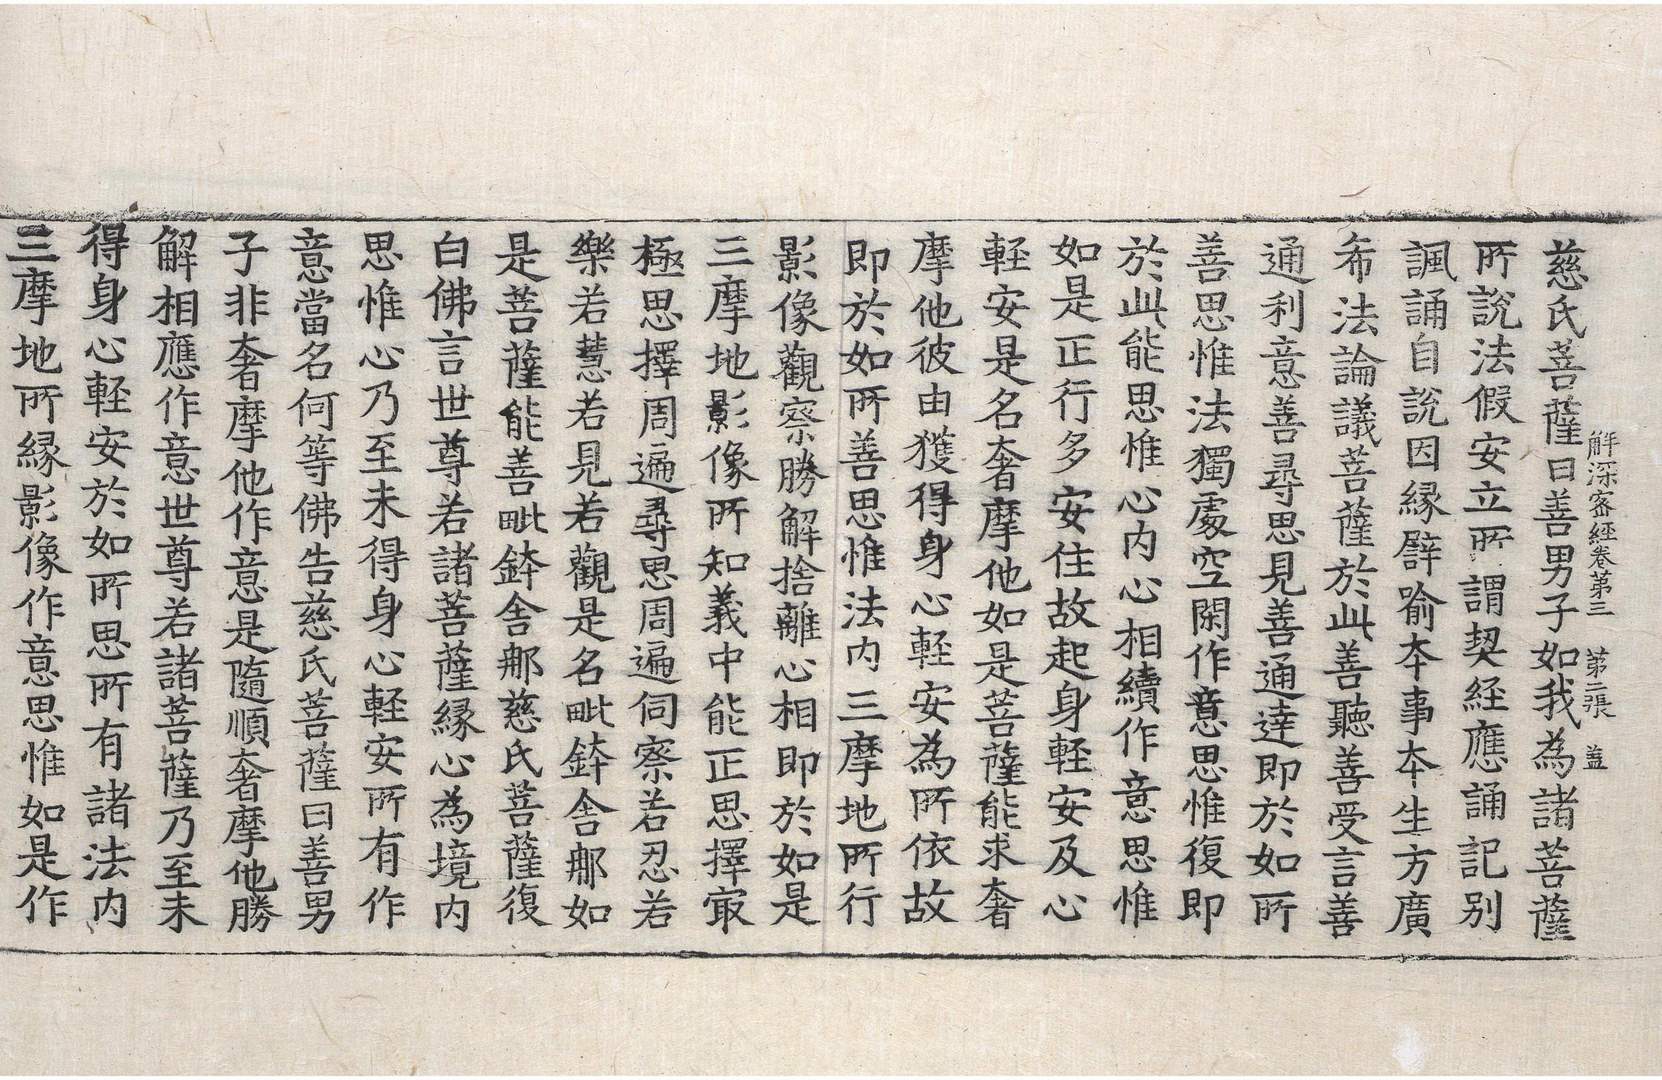 解深密經卷第三　第二張　盖
慈氏菩薩曰善男子如我為諸菩薩
所說法假安立所謂契経應誦記別
諷誦自說因緣譬喻本事本生方廣
希法論議菩薩於此善聽善受言善
通利意善尋思見善通達即於如所
善思惟法獨處空閑作意思惟復即
於此能思惟心內心相續作意思惟
如是正行多安住故起身軽安及心
軽安是名奢摩他如是菩薩能求奢
摩他彼由獲得身心軽安為所依故
即於如所善思惟法內三摩地所行
影像觀察勝解捨離心相即於如是
三摩地影像所知義中能正思擇㝡
極思擇周遍尋思周遍伺察若忍若
樂若慧若見若觀是名毗鉢舍那如
是菩薩能善毗鉢舍那慈氏菩薩復
白佛言世尊若諸菩薩緣心為境內
思惟心乃至未得身心軽安所有作
意當名何等佛告慈氏菩薩曰善男
子非奢摩他作意是隨順奢摩他勝
解相應作意世尊若諸菩薩乃至未
得身心軽安於如所思所有諸法內
三摩地所緣影像作意思惟如是作